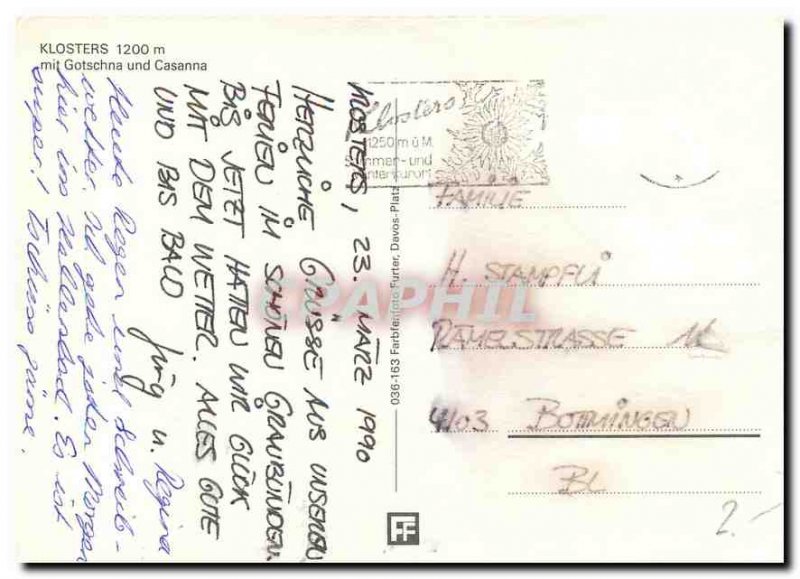 KLOSTERS 1200 m
mit Gotschna und Casanna
KLOSTERS, 23. MÄRZ 1990
HERZLICHE GRÜSSE AUS UNSEREN
FERIEN IM SCHÖNEN GRAUBÜNDEN.
BIS JETZT HATTEN WIR GLÜCK
MIT DEM WETTER. ALLES GUTE
UND BIS BALD
Jürg u. Regina
Heute Regen und
wetter. Ich gehe jeden Morgen
hier ins Hallenbad. Es ist
super! Tschüss zäme.
036-163 Farbfenfoto Furter, Davos-Platz
Klosters
1250 m ü.M.
Sommer- und
Winterkurort
FAMILIE
H. STAMPFLI
RÄMELSTRASSE
4103 BOTTMINGEN
BL
2.-
CPAPHIL
FF